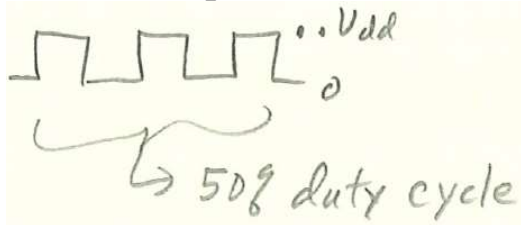 Vdd
0
50% duty cycle